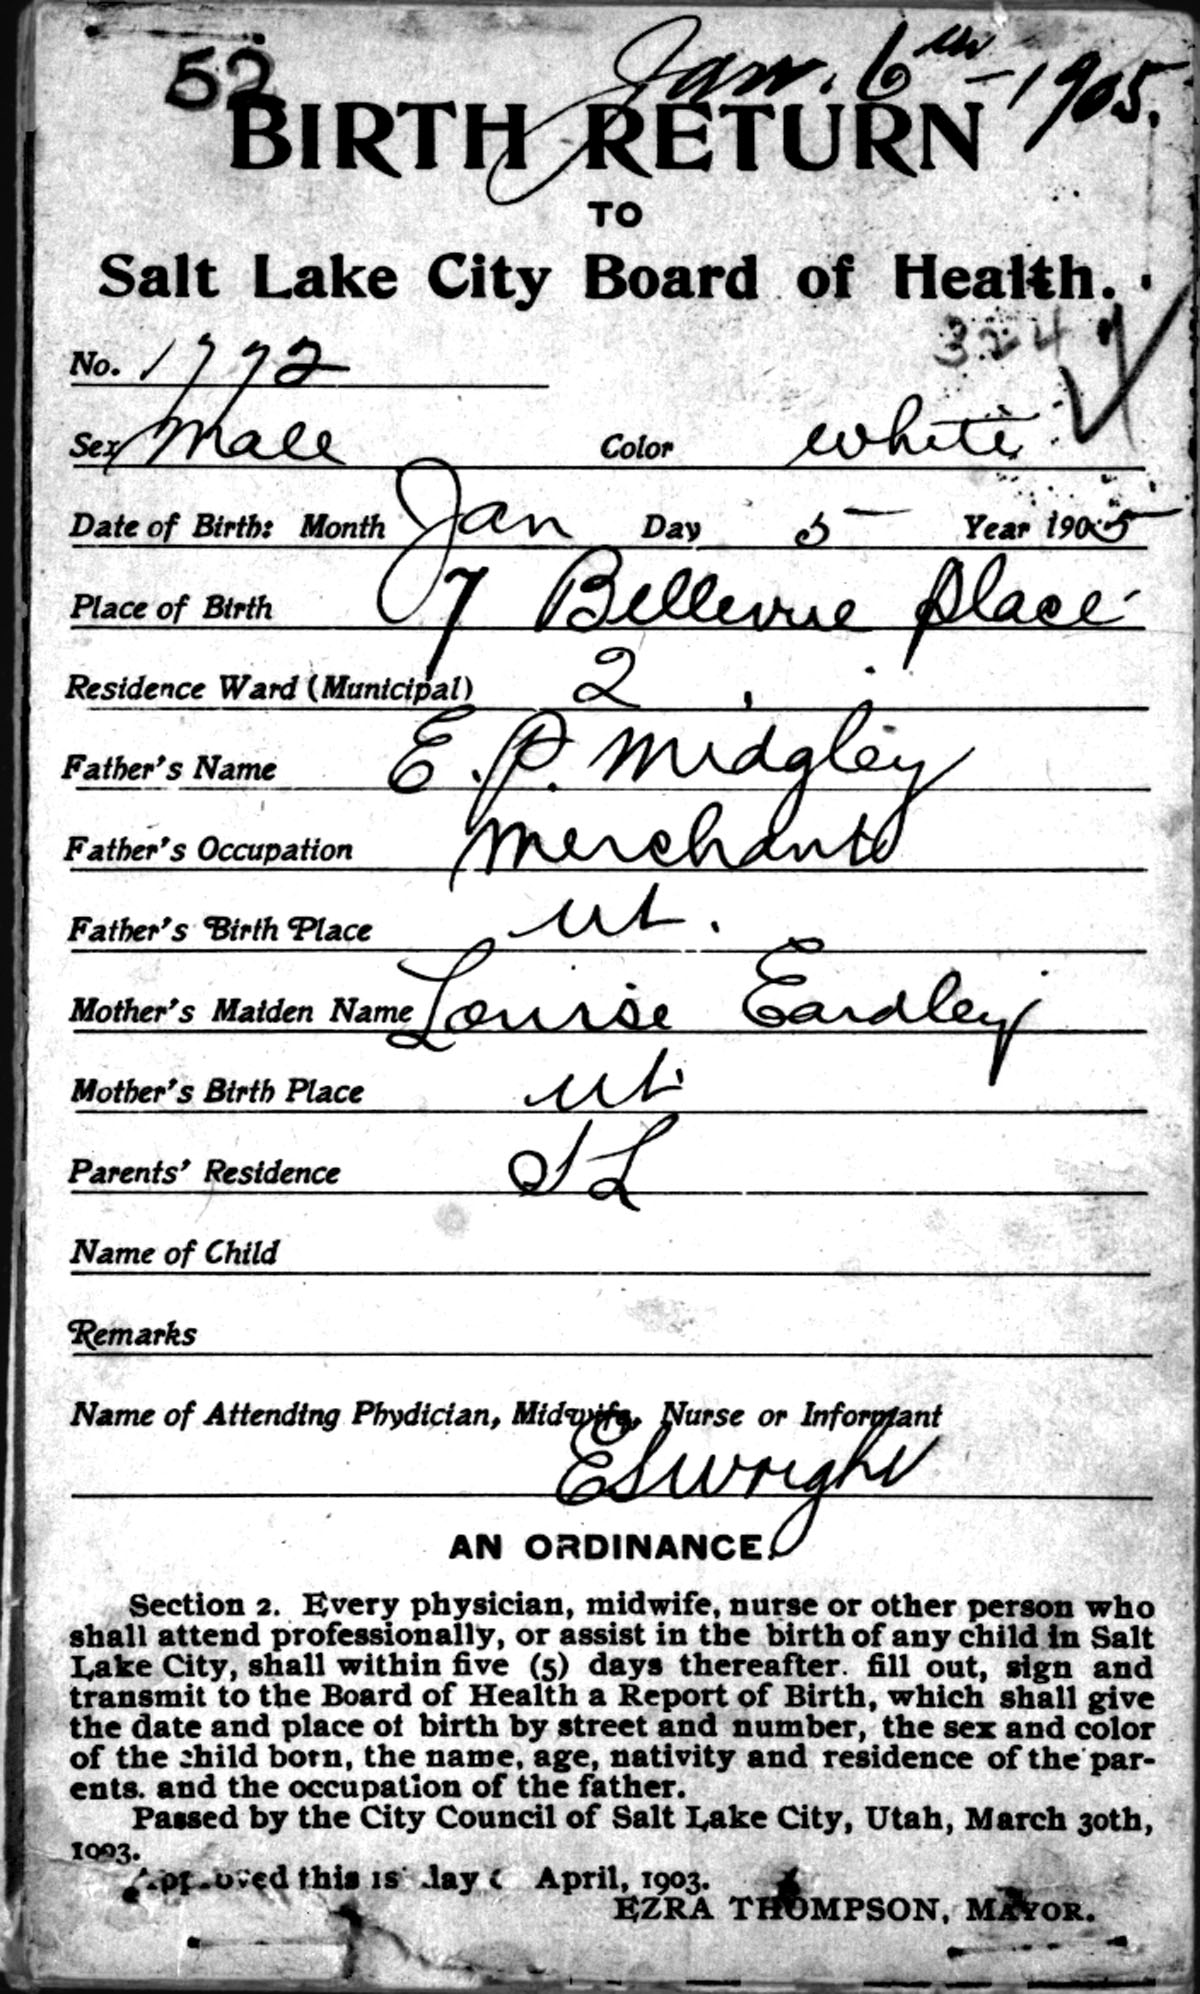 52
Jan. 6th - 1905.
BIRTH RETURN
TO
Salt Lake City Board of Health.
324
No. 1772
Sex Male Color white
Date of Birth: Month Jan Day 5 Year 1905
Place of Birth 7 Bellevue place
Residence Ward (Municipal) 2
Father's Name E. P. Midgley
Father's Occupation Merchant
Father's Birth Place Ut.
Mother's Maiden Name Louise Eardley
Mother's Birth Place Ut.
Parents' Residence S L
Name of Child
Remarks
Name of Attending Phydician, Midwife, Nurse or Informant
E S Wright
AN ORDINANCE.
Section 2. Every physician, midwife, nurse or other person who
shall attend professionally, or assist in the birth of any child in Salt
Lake City, shall within five (5) days thereafter. fill out, sign and
transmit to the Board of Health a Report of Birth, which shall give
the date and place of birth by street and number, the sex and color
of the child born, the name, age, nativity and residence of the par-
ents. and the occupation of the father.
Passed by the City Council of Salt Lake City, Utah, March 30th,
1903.
Approved this 1s day April, 1903.
EZRA THOMPSON, MAYOR.